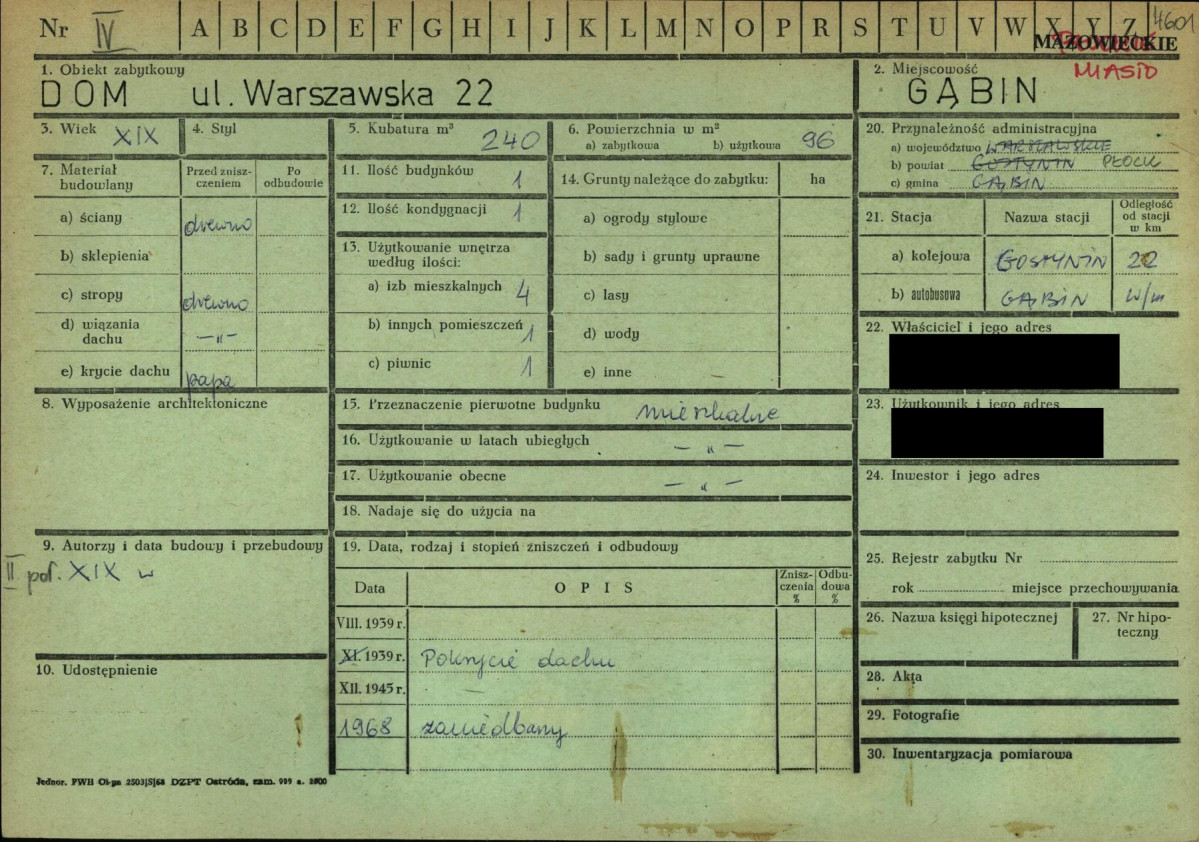 Nr IV A B C D E F G H I J K L M N O P R S T U V W X Y Z 4601
MAZOWIECKIE
MIASTO
1. Obiekt zabytkowy
DOM ul. Warszawska 22
2. Miejscowość
GĄBIN
3. Wiek XIX
4. Styl
5. Kubatura m³ 240
6. Powierzchnia w m²
a) zabytkowa b) użytkowa 96
7. Materiał budowlany
Przed zniszczeniem
Po odbudowie
a) ściany drewno
b) sklepienia
c) stropy drewno
d) wiązania dachu —„—
e) krycie dachu papa
8. Wyposażenie architektoniczne
9. Autorzy i data budowy i przebudowy
II poł. XIX w
10. Udostępnienie
11. Ilość budynków 1
12. Ilość kondygnacji 1
13. Użytkowanie wnętrza
według ilości:
a) izb mieszkalnych 4
b) innych pomieszczeń 1
c) piwnic 1
14. Grunty należące do zabytku: ha
a) ogrody stylowe
b) sady i grunty uprawne
c) lasy
d) wody
e) inne —
15. Przeznaczenie pierwotne budynku mieszkalne
16. Użytkowanie w latach ubiegłych —„—
17. Użytkowanie obecne —„—
18. Nadaje się do użycia na
19. Data, rodzaj i stopień zniszczeń i odbudowy
Data OPIS Zniszczenia % Odbudowa %
VIII. 1939 r.
XI. 1939 r. Pokrycie dachu
XII. 1945 r. —
1968 zaniedbany
20. Przynależność administracyjna
a) województwo WARSZAWSKIE
b) powiat GOSTYNIN PŁOCK
c) gmina GĄBIN
21. Stacja Nazwa stacji Odległość od stacji w km
a) kolejowa GOSTYNIN 22
b) autobusowa GĄBIN w/m
22. Właściciel i jego adres
23. Użytkownik i jego adres
24. Inwestor i jego adres
25. Rejestr zabytku Nr
rok miejsce przechowywania
26. Nazwa księgi hipotecznej
27. Nr hipoteczny
28. Akta
29. Fotografie
30. Inwentaryzacja pomiarowa
Jednor. PWH Ol-pa 2503|S|68 DZPT Ostróda, zam. 999 a.